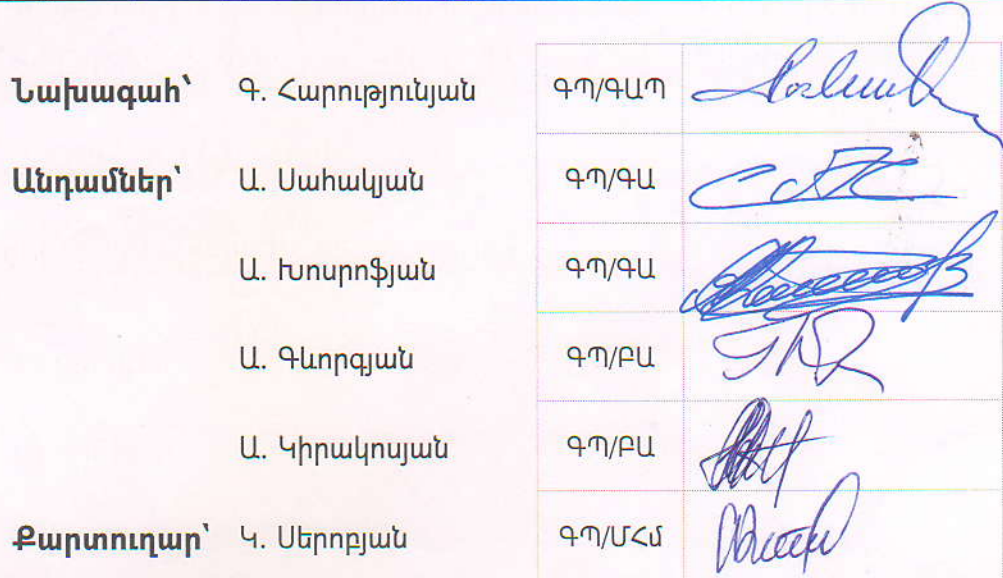 Նախագահ՝ Գ. Հարությունյան ԳՊ/ԳԱՊ
Անդամներ՝ Ա. Սահակյան ԳՊ/ԳԱ
Ա. Խոսրոֆյան ԳՊ/ԳԱ
Ա. Գևորգյան ԳՊ/ԲԱ
Ա. Կիրակոսյան ԳՊ/ԲԱ
Քարտուղար՝ Կ. Սերոբյան ԳՊ/ՄՀմ